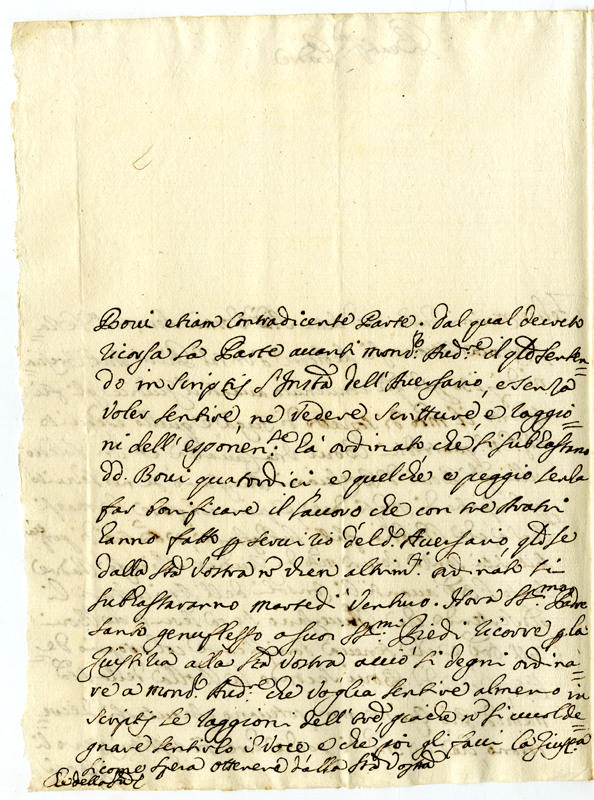 Bovi etiam Contradicente Parte. Dal qual decreto
ricorsa la Parte avanti mons.r Aud.re il q.le senten=
do in scriptis l'Inst.a dell'Aversario, e senza
voler sentire, ne vedere scritture, e raggio=
ni dell'esponen.te ha ordinato che si subhastano
dd. Bovi quatordici e quelche e peggio senza
far bonificare il lavoro che con tre Aratri
hanno fatto p servitio del d.o Aversario, q.li se
dalla S.tà Vostra n.o vien altrim.ti ordinato si
subhastaranno martedi venturo. Hora SS.mo Padre
Santo genuflesso a suoi SS.mi Piedi ricorre p la
Giustitia alla S.tà Vostra acciò si degni ordina=
re a mons.r Aud.re che voglia sentire almeno in
scriptis le raggioni dell' Ore, giache n.o si vuol de=
gnare sentirlo in Voce e che poi gli facci la Giust.a
sicome spera ottenere dalla S.tà Vostra